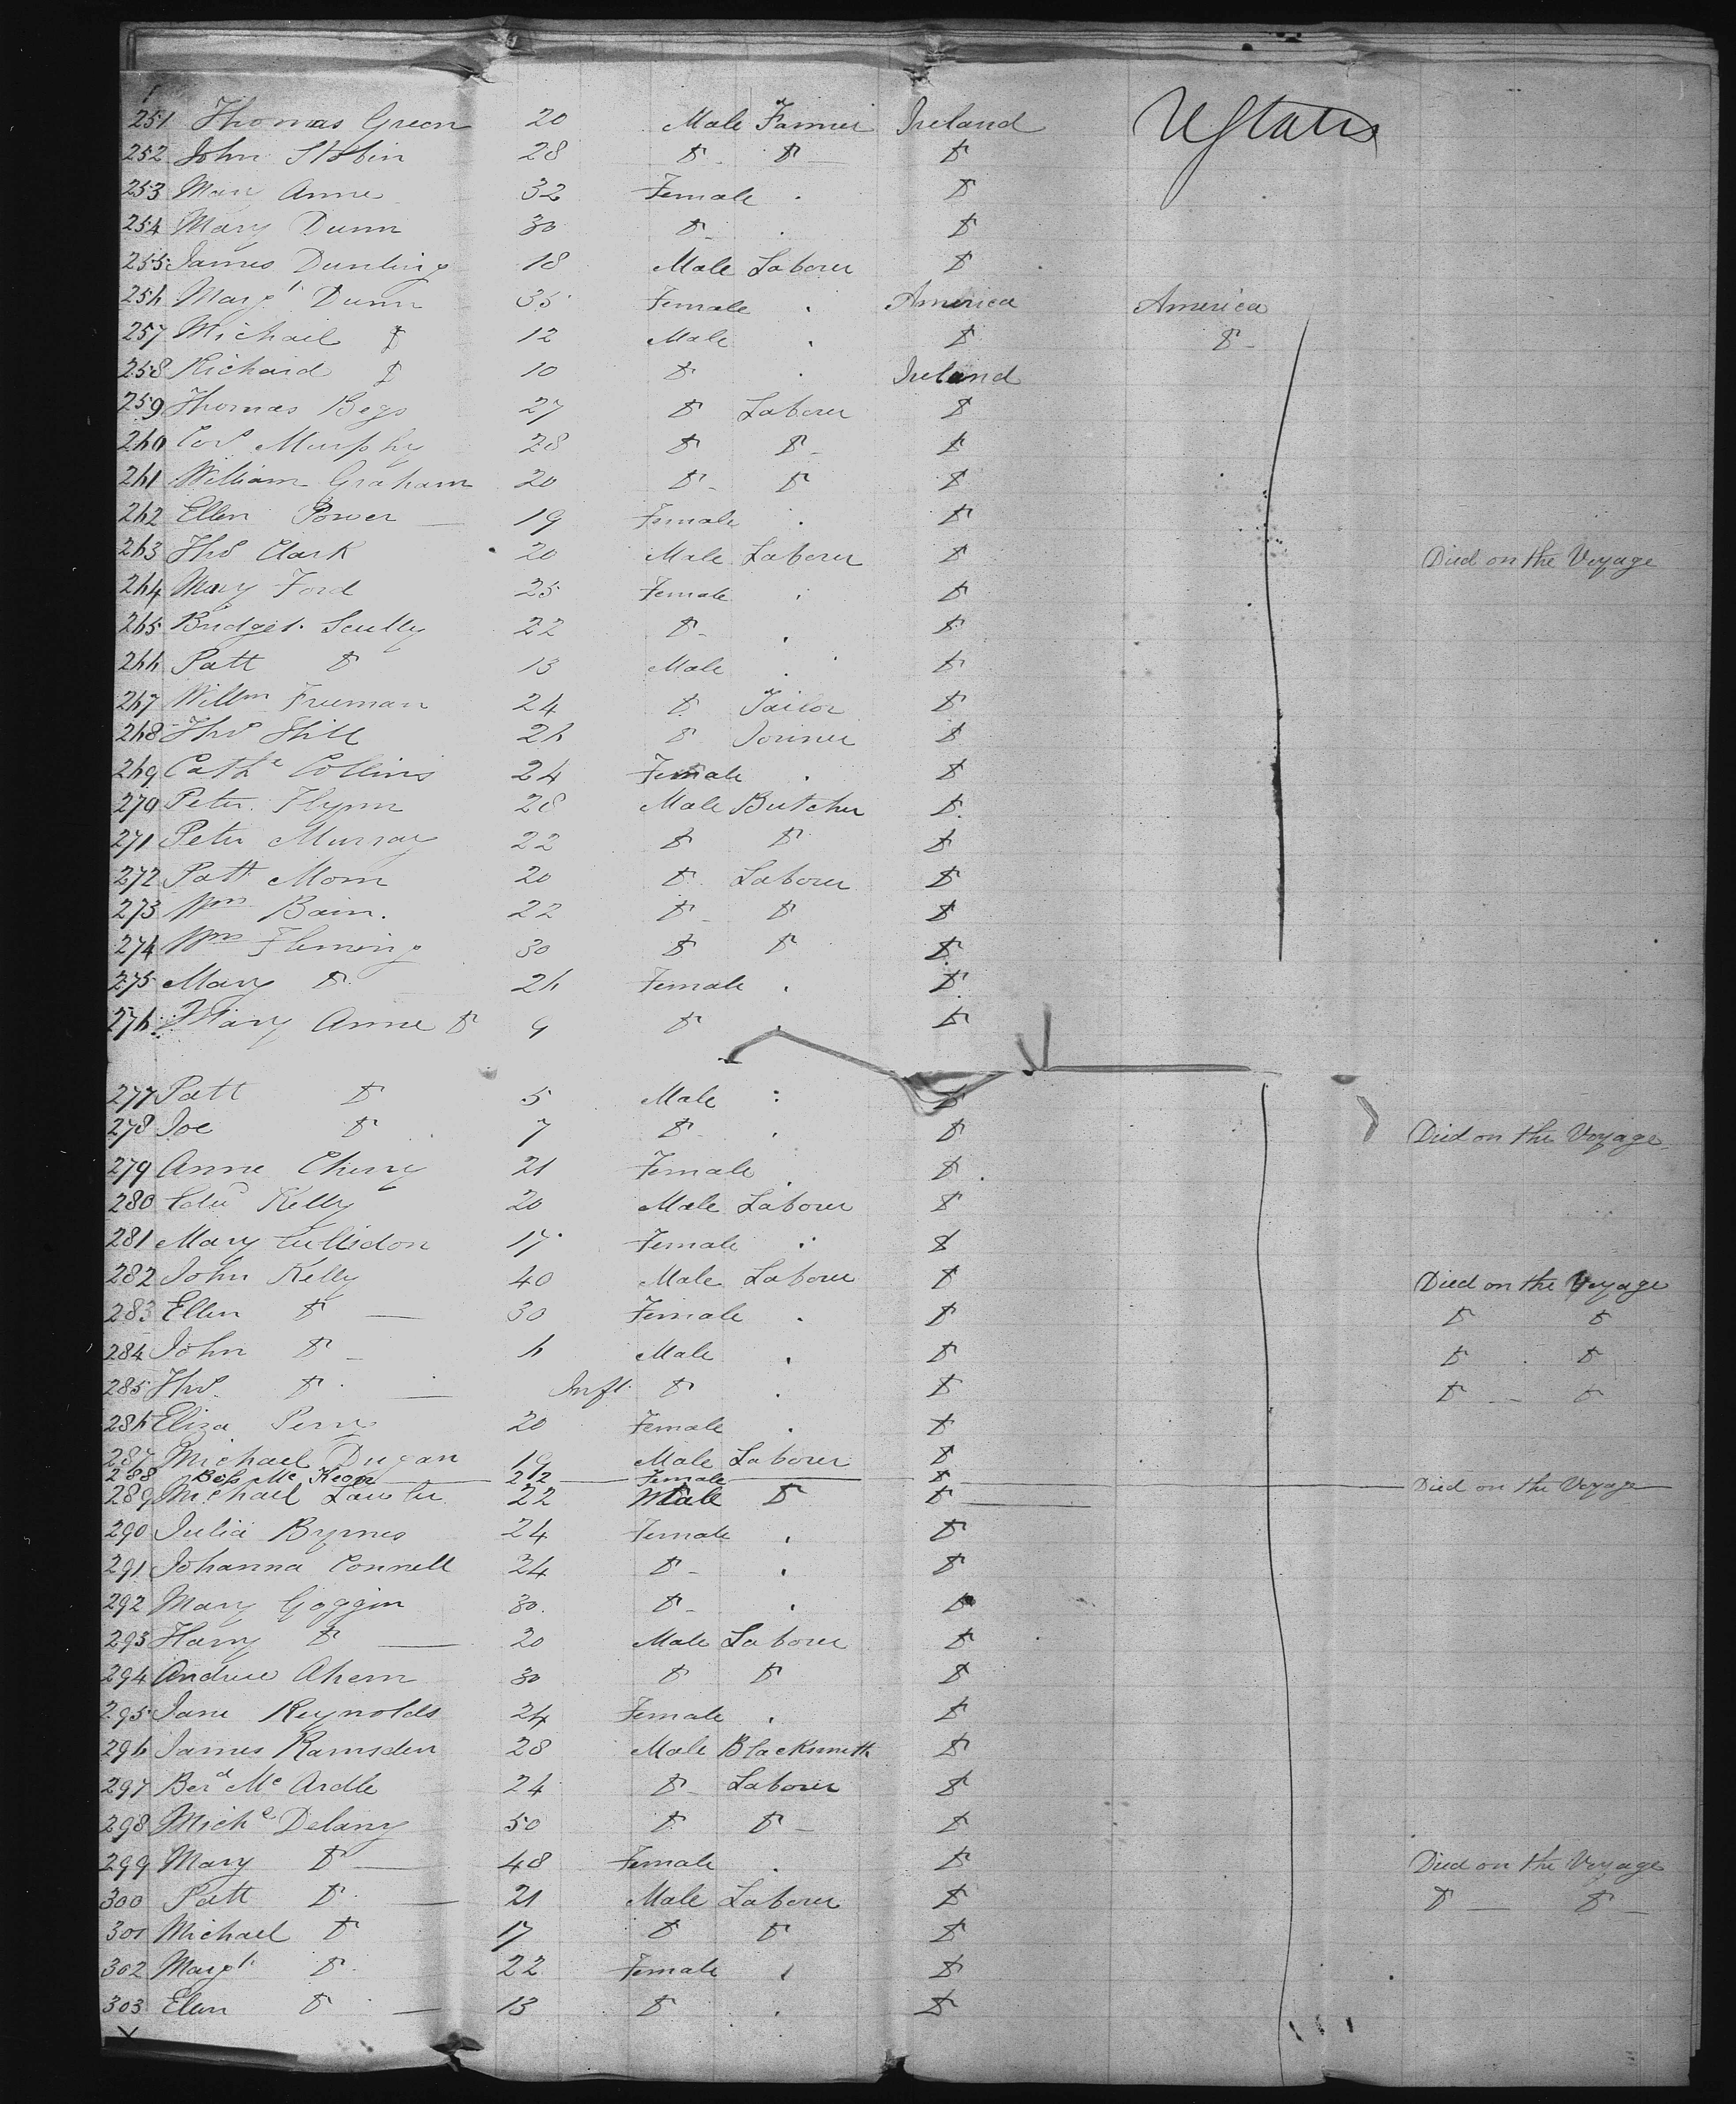 251 Thomas Green 20 Male Farmer Ireland UStates
252 John Stobin 28 Do Do Do
253 Mary Anne 32 Female Do
254 Mary Dunn 30 Do Do
255 James Dunling 18 Male Laborer Do
256 Margt Dunn 35 Female America America
257 Michael Do 12 Male Do Do
258 Richard Do 10 Do Ireland
259 Thomas Begs 27 Do Laborer Do
260 Murphy 28 Do Do Do
261 William Graham 20 Do Do Do
262 Ellen Power 19 Female Do
263 Thos Clark 20 Male Laborer Do Died on the Voyage
264 Mary Ford 25 Female Do
265 Bridget Scully 22 Do Do
266 Patt Do 13 Male Do
267 Willm Freeman 24 Do Tailor Do
268 Thos Hill 26 Do Joiner Do
269 Cathe Collins 24 Female Do
270 Peter Flynn 28 Male Butcher Do
271 Peter Murray 22 Do Do Do
272 Patt Morn 20 Do Laborer Do
273 Wm Bain. 22 Do Do Do
274 Wm Fleming 30 Do Do Do
275 Mary Do 26 Female Do
276 Mary Anne Do 9 Do Do
277 Patt Do 5 Male Do
278 Joe Do 7 Do Do Died on the Voyage
279 Anne Cherry 21 Female Do
280 Edwd Kelly 20 Male Laborer Do
281 Mary Cullidon 17 Female Do
282 John Kelly 40 Male Laborer Do Died on the Voyage
283 Ellen Do 30 Female Do Do Do
284 John Do 6 Male Do Do Do
285 Thos Do Inft Do Do Do Do
286 Eliza Perry 20 Female Do
287 Michael Dugan 19 Male Laborer Do
288 Bess Mc Keon 22 Female Do Died on the Voyage
289 Michael Lawler 22 Male Do Do
290 Julia Byrnes 24 Female Do
291 Johanna Connell 24 Do Do
292 Mary Goggin 30 Do Do
293 Harry Do 20 Male Laborer Do
294 Andrew Ahern 30 Do Do Do
295 Jane Reynolds 24 Female Do
296 James Ramsden 28 Male Blacksmith Do
297 Berd Mc Ardle 24 Do Laborer Do
298 Michl Delany 50 Do Do Do
299 Mary Do 48 Female Do Died on the Voyage
300 Patt Do 21 Male Laborer Do Do Do
301 Michael Do 17 Do Do Do
302 Margt Do 22 Female Do
303 Ellen Do 13 Do Do